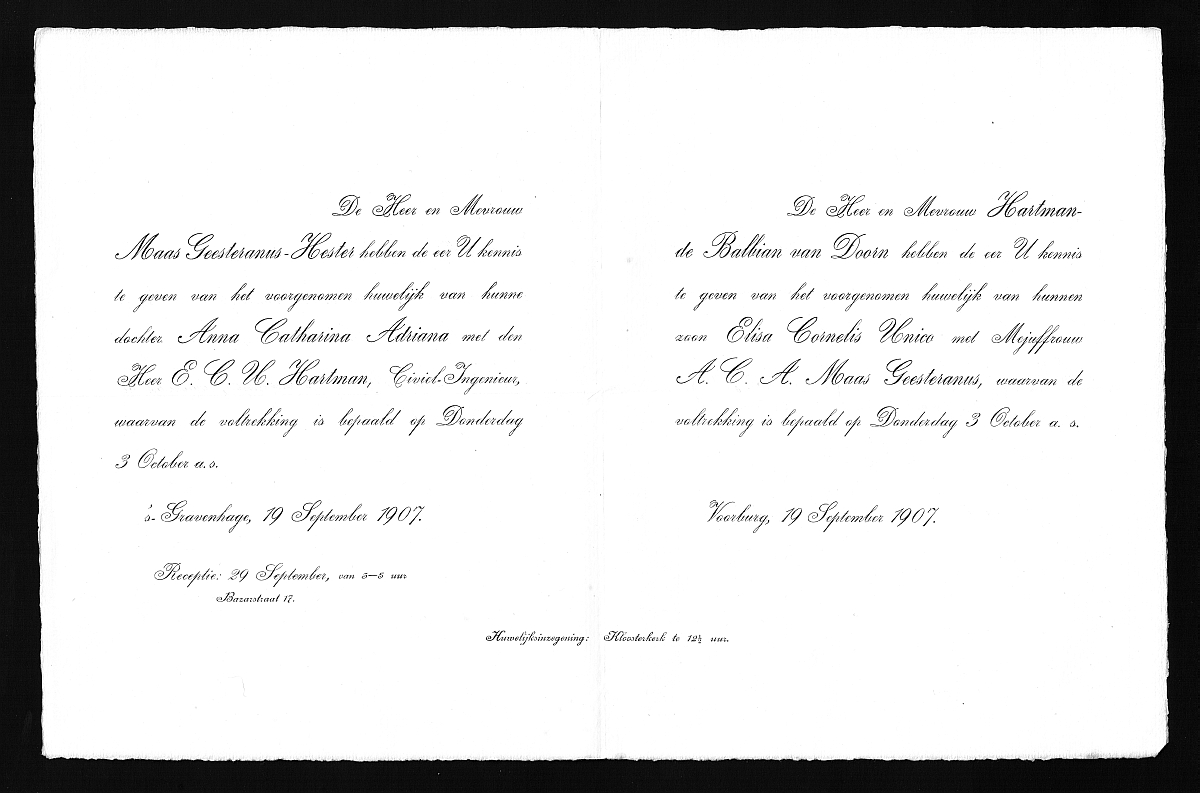 De Heer en Mevrouw
Maas Geesteranus-Hester hebben de eer U kennis
te geven van het voorgenomen huwelijk van hunne
dochter Anna Catharina Adriana met den
Heer E. C. U. Hartman, Civiel-Ingenieur,
waarvan de voltrekking is bepaald op Donderdag
3 October a.s.
's-Gravenhage, 19 September 1907.
Receptie: 29 September, van 3—5 uur
Bazarstraat 17.
De Heer en Mevrouw Hartman-
de Balbian van Doorn hebben de eer U kennis
te geven van het voorgenomen huwelijk van hunnen
zoon Elisa Cornelis Unico met Mejuffrouw
A. C. A. Maas Geesteranus, waarvan de
voltrekking is bepaald op Donderdag 3 October a. s.
Voorburg, 19 September 1907.
Huwelijksinzegening: Kloosterkerk te 12½ uur.